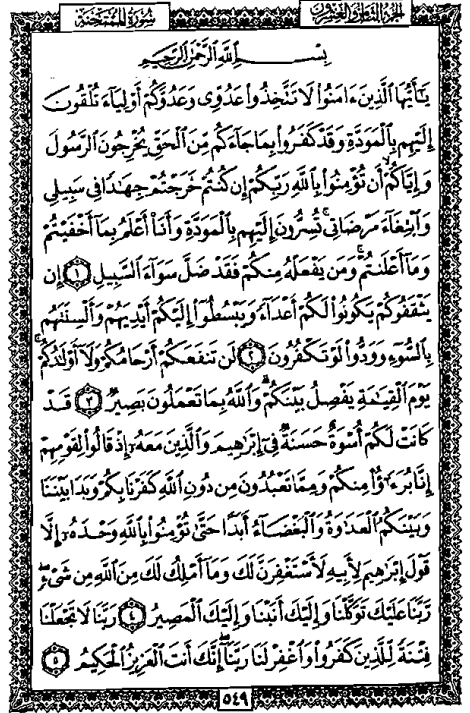 سُورَةُ المُمْتَحنَةِ
الجُزءُ الثَّامِنُ وَالعِشْرُونَ
بِسْمِ ٱللَّهِ ٱلرَّحْمَٰنِ ٱلرَّحِيمِ
يَٰٓأَيُّهَا ٱلَّذِينَ ءَامَنُوا۟ لَا تَتَّخِذُوا۟ عَدُوِّى وَعَدُوَّكُمْ أَوْلِيَآءَ تُلْقُونَ
إِلَيْهِم بِٱلْمَوَدَّةِ وَقَدْ كَفَرُوا۟ بِمَا جَآءَكُم مِّنَ ٱلْحَقِّ يُخْرِجُونَ ٱلرَّسُولَ
وَإِيَّاكُمْ ۙ أَن تُؤْمِنُوا۟ بِٱللَّهِ رَبِّكُمْ إِن كُنتُمْ خَرَجْتُمْ جِهَٰدًا فِى سَبِيلِى
وَٱبْتِغَآءَ مَرْضَاتِى ۚ تُسِرُّونَ إِلَيْهِم بِٱلْمَوَدَّةِ وَأَنَا۠ أَعْلَمُ بِمَآ أَخْفَيْتُمْ
وَمَآ أَعْلَنتُمْ ۚ وَمَن يَفْعَلْهُ مِنكُمْ فَقَدْ ضَلَّ سَوَآءَ ٱلسَّبِيلِ ١ إِن
يَثْقَفُوكُمْ يَكُونُوا۟ لَكُمْ أَعْدَآءً وَيَبْسُطُوٓا۟ إِلَيْكُمْ أَيْدِيَهُمْ وَأَلْسِنَتَهُم
بِٱلسُّوٓءِ وَوَدُّوا۟ لَوْ تَكْفُرُونَ ٢ لَن تَنفَعَكُمْ أَرْحَامُكُمْ وَلَآ أَوْلَٰدُكُمْ ۚ
يَوْمَ ٱلْقِيَٰمَةِ يَفْصِلُ بَيْنَكُمْ ۚ وَٱللَّهُ بِمَا تَعْمَلُونَ بَصِيرٌ ٣ قَدْ
كَانَتْ لَكُمْ أُسْوَةٌ حَسَنَةٌ فِىٓ إِبْرَٰهِيمَ وَٱلَّذِينَ مَعَهُۥٓ إِذْ قَالُوا۟ لِقَوْمِهِمْ
إِنَّا بُرَءَٰٓؤُا۟ مِنكُمْ وَمِمَّا تَعْبُدُونَ مِن دُونِ ٱللَّهِ كَفَرْنَا بِكُمْ وَبَدَا بَيْنَنَا
وَبَيْنَكُمُ ٱلْعَدَٰوَةُ وَٱلْبَغْضَآءُ أَبَدًا حَتَّىٰ تُؤْمِنُوا۟ بِٱللَّهِ وَحْدَهُۥٓ إِلَّا
قَوْلَ إِبْرَٰهِيمَ لِأَبِيهِ لَأَسْتَغْفِرَنَّ لَكَ وَمَآ أَمْلِكُ لَكَ مِنَ ٱللَّهِ مِن شَىْءٍ ۖ
رَّبَّنَا عَلَيْكَ تَوَكَّلْنَا وَإِلَيْكَ أَنَبْنَا وَإِلَيْكَ ٱلْمَصِيرُ ٤ رَبَّنَا لَا تَجْعَلْنَا
فِتْنَةً لِّلَّذِينَ كَفَرُوا۟ وَٱغْفِرْ لَنَا رَبَّنَآ ۖ إِنَّكَ أَنتَ ٱلْعَزِيزُ ٱلْحَكِيمُ ٥
٥٤٩